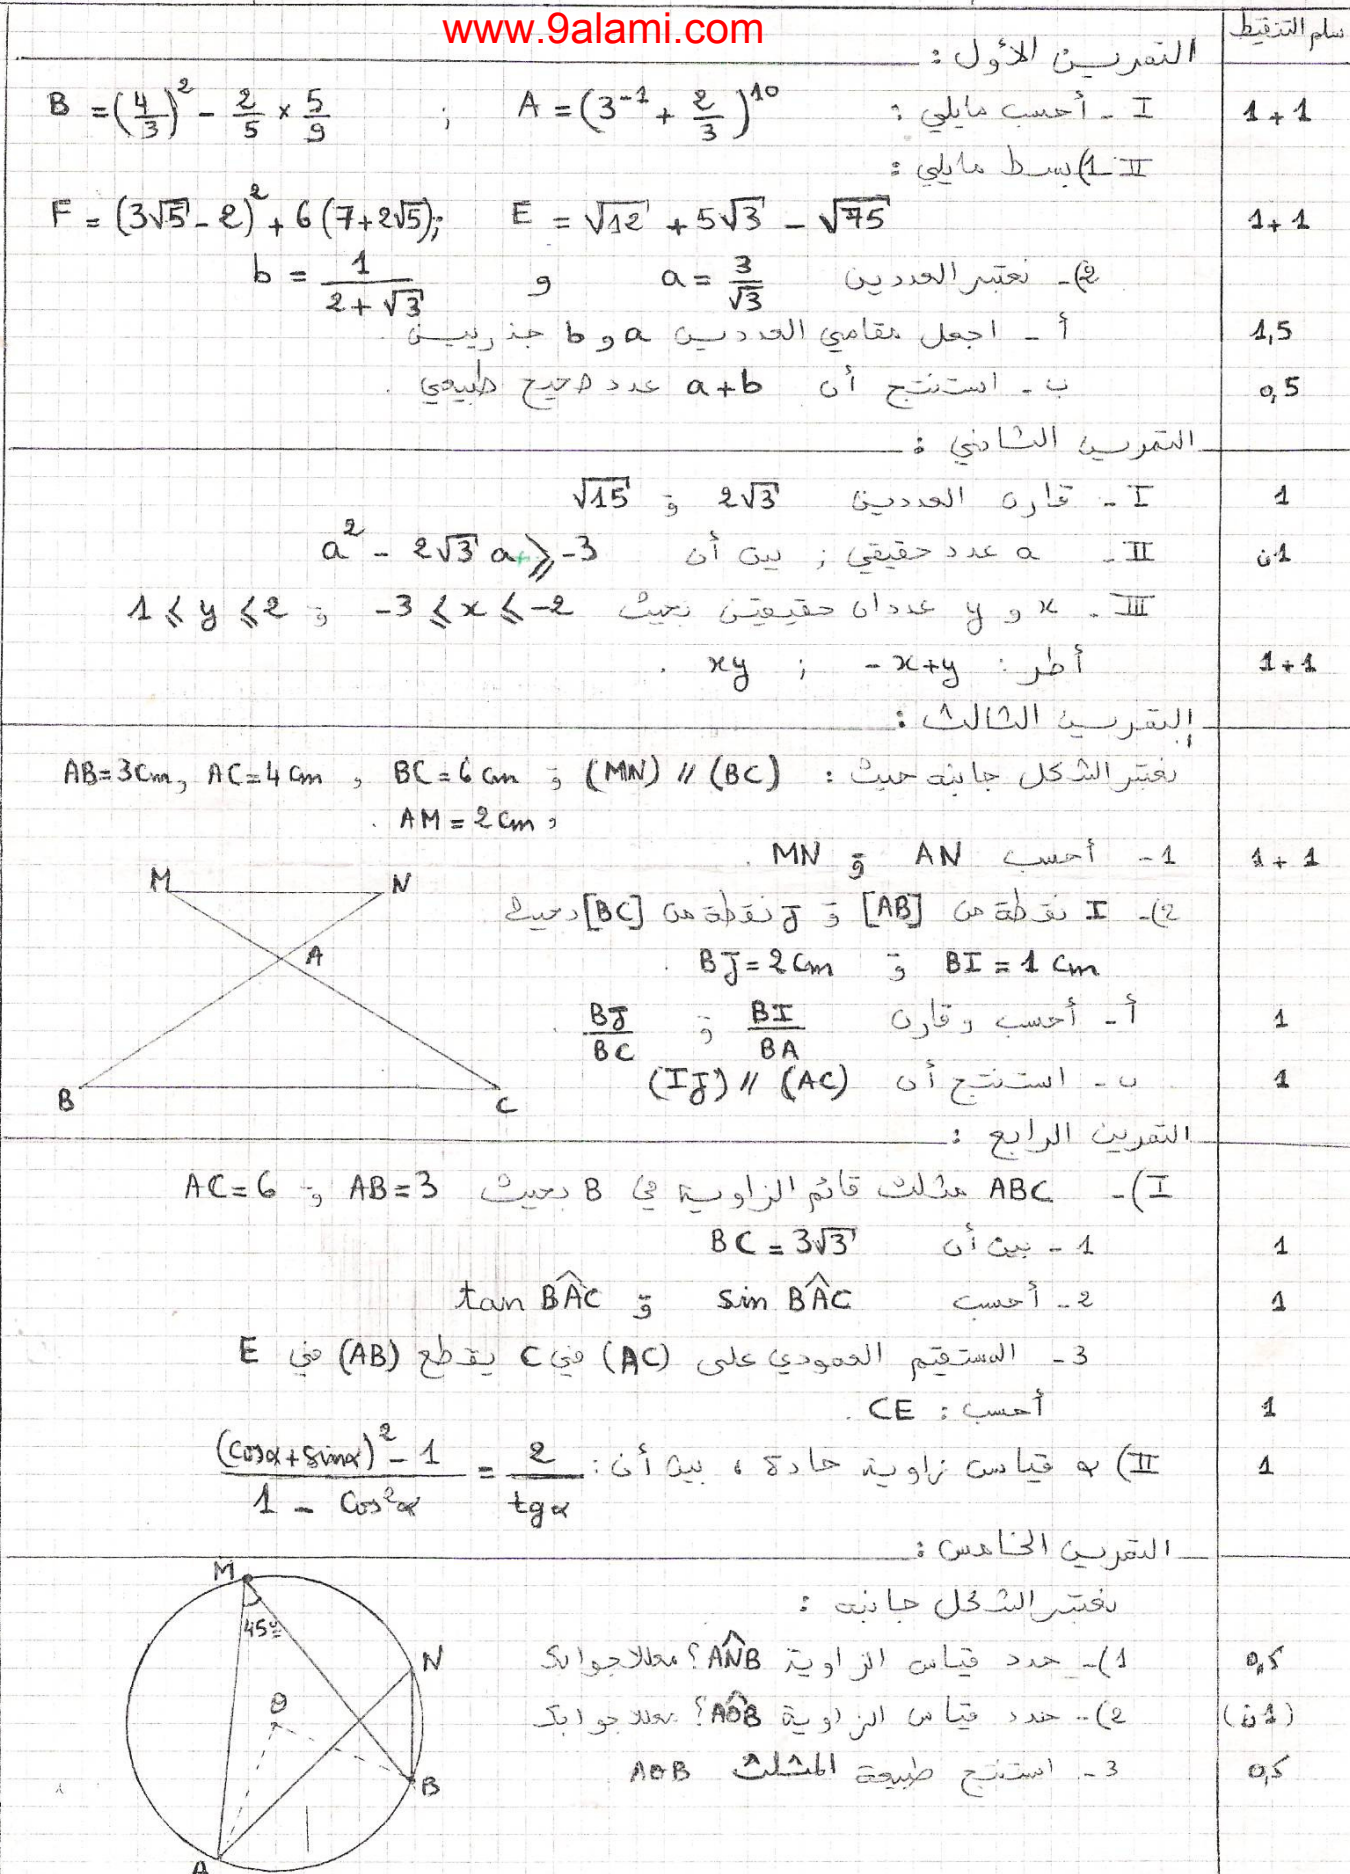 www.9alami.com
سلم التنقيط
التمرين الأول :
I - أحسب مايلي : A = (3⁻¹ + 2/3)¹⁰ ; B = (4/3)² - 2/5 × 5/9
1+1
II-1) بسط مايلي :
E = √12 + 5√3 - √75 F = (3√5 - 2)² + 6(7+2√5);
1+1
2)- نعتبر العددين a = 3/√3 و b = 1/(2+√3)
أ - اجعل مقامي العددين a و b جذريين .
1,5
ب - استنتج أن a+b عدد صحيح طبيعي .
0,5
التمرين الثاني :
I - قارن العددين 2√3 و √15
1
II - a عدد حقيقي ; بين أن a² - 2√3 a ⩾ -3
1ن
III - x و y عددان حقيقيين بحيث -3 ⩽ x ⩽ -2 و 1 ⩽ y ⩽ 2
أطر : -x+y ; xy .
1+1
التمرين الثالث :
نعتبر الشكل جانبه حيث : (MN) // (BC) و BC = 6 cm , AC = 4 cm , AB = 3 cm
, AM = 2 cm .
1- أحسب AN و MN .
1+1
2)- I نقطة من [AB] و J نقطة من [BC] بحيث
BI = 1 cm و BJ = 2 cm .
أ - أحسب و قارن BI/BA و BJ/BC .
1
ب - استنتج أن (IJ) // (AC)
1
M
N
A
B
C
التمرين الرابع :
I)- ABC مثلث قائم الزاوية في B بحيث AB=3 و AC=6
1 - بين أن BC = 3√3
1
2 - أحسب sin BÂC و tan BÂC
1
3 - المستقيم العمودي على (AC) في C يقطع (AB) في E
أحسب : CE .
1
II) α قياس زاوية حادة ، بين أن : ((cosα + sinα)² - 1)/(1 - cos²α) = 2/tgα
1
التمرين الخامس :
نعتبر الشكل جانبه :
1)- حدد قياس الزاوية AN̂B ؟ معللا جوابك
0,5
2)- حدد قياس الزاوية AÔB ؟ معللا جوابك
(1ن)
3 - استنتج طبيعة المثلث AOB
0,5
M
45°
N
O
B
A